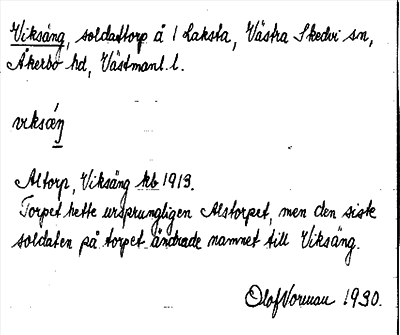 Viksäng, soldattorp å 1 Laksta, Västra Skedvi sn,
Åkerbo hd, Västmanl. l.
viksǽŋ
Altorp, Viksäng kb 1913.
Torpet hette ursprungligen Alstorpet, men den siste
soldaten på torpet ändrade namnet till Viksäng.
Olof Norman 1930.